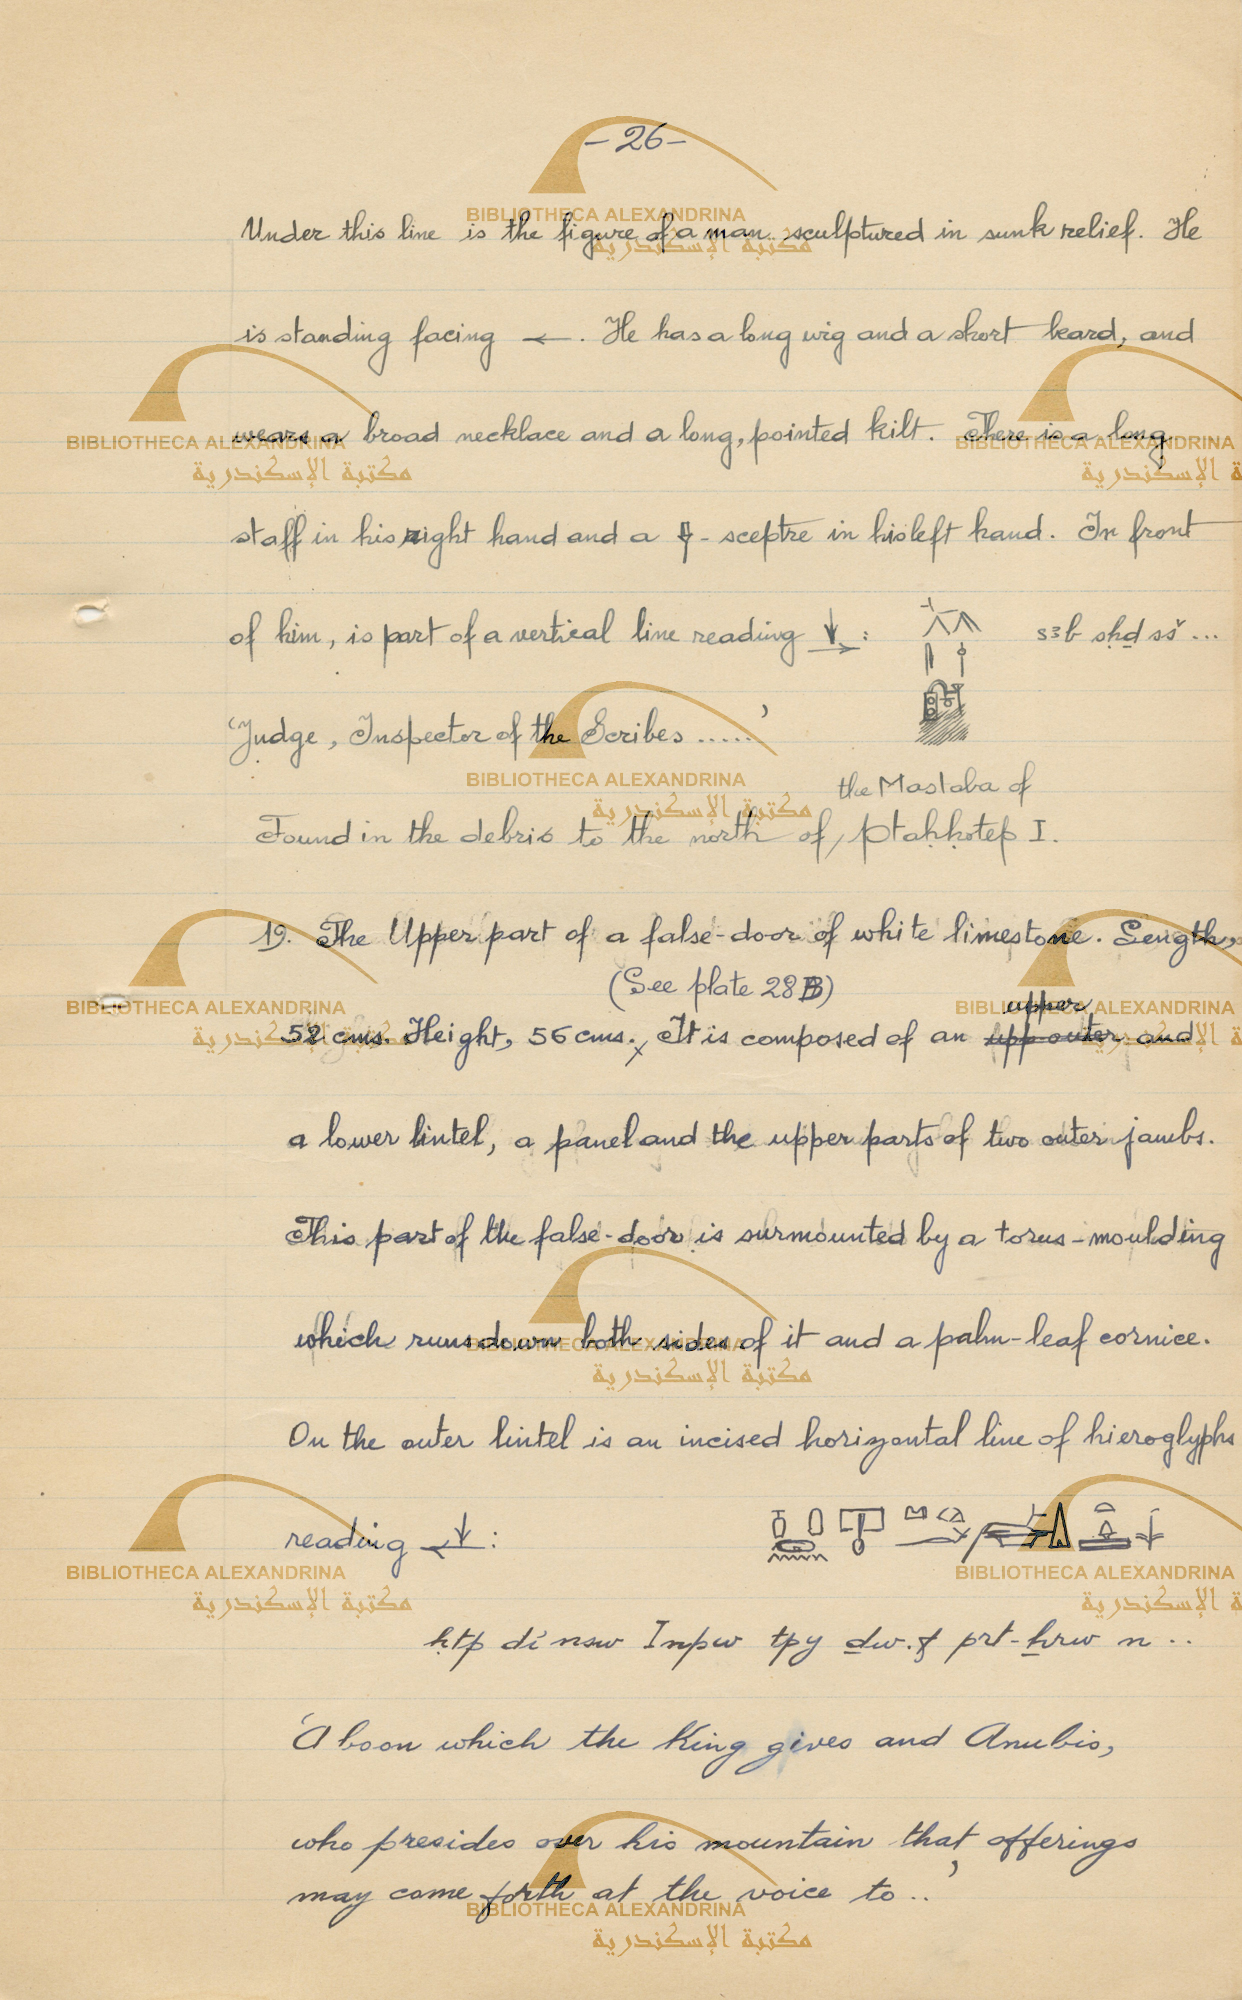 - 26 -
Under this line is the figure of a man sculptured in sunk relief. He
is standing facing ←. He has a long wig and a short beard, and
wears a broad necklace and a long, pointed kilt. There is a long
staff in his right hand and a - sceptre in his left hand. In front
of him, is part of a vertical line reading ↓→ : sꜣb sḥḏ sš ...
'Judge, Inspector of the Scribes .....'
the Mastaba of
Found in the debris to the north of / Ptahhotep I.
19. The Upper part of a false-door of white limestone. Length,
(See plate 28 B)
52 cms. Height, 56 cms. It is composed of an upper
upp outer and
a lower lintel, a panel and the upper parts of two outer jambs.
This part of the false-door is surmounted by a torus-moulding
which runs down both sides of it and a palm-leaf cornice.
On the outer lintel is an incised horizontal line of hieroglyphs
reading ←↓ :
ḥtp di nsw Inpw tpy ḏw.f prt-ḫrw n ..
'A boon which the King gives and Anubis,
who presides over his mountain that offerings
may come forth at the voice to ..'
BIBLIOTHECA ALEXANDRINA
مكتبة الإسكندرية